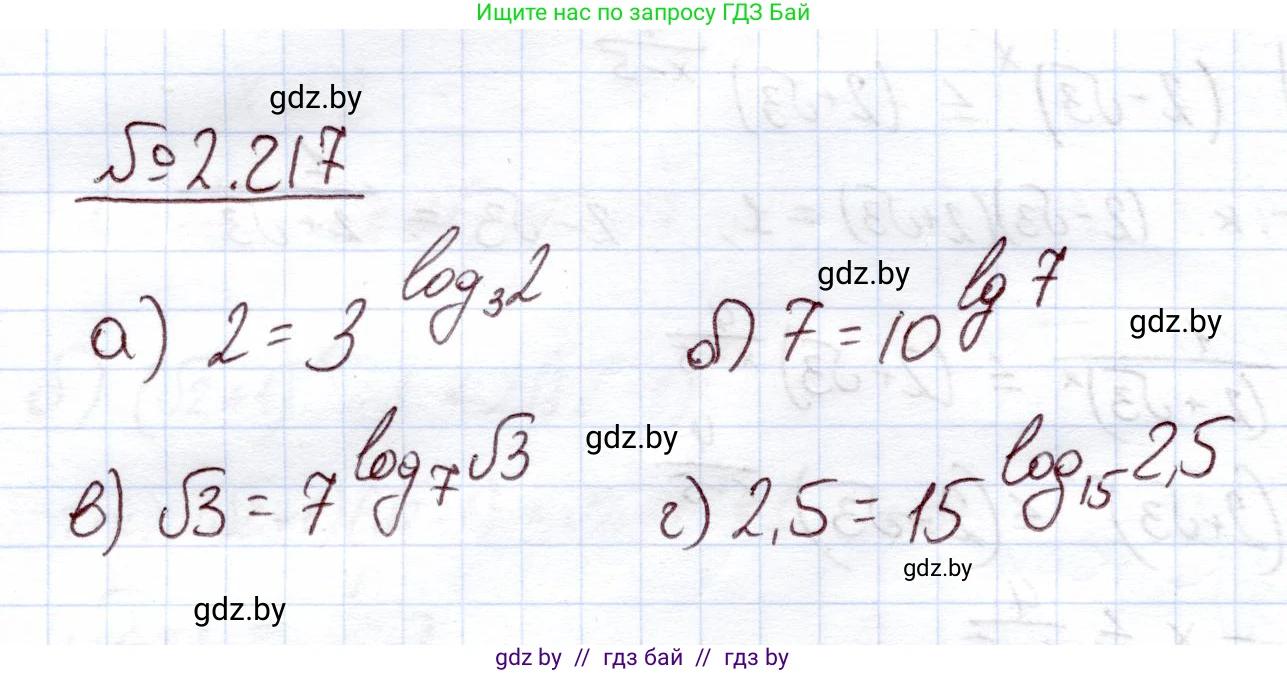 Ищите нас по запросу ГДЗ Бай
gdz.by
№2.217
а) 2 = 3^log₃2
gdz.by
б) 7 = 10^lg 7
gdz.by
в) √3 = 7^log₇√3
gdz.by
г) 2,5 = 15^log₁₅2,5
gdz.by
gdz.by
gdz by // гдз бай // гдз by